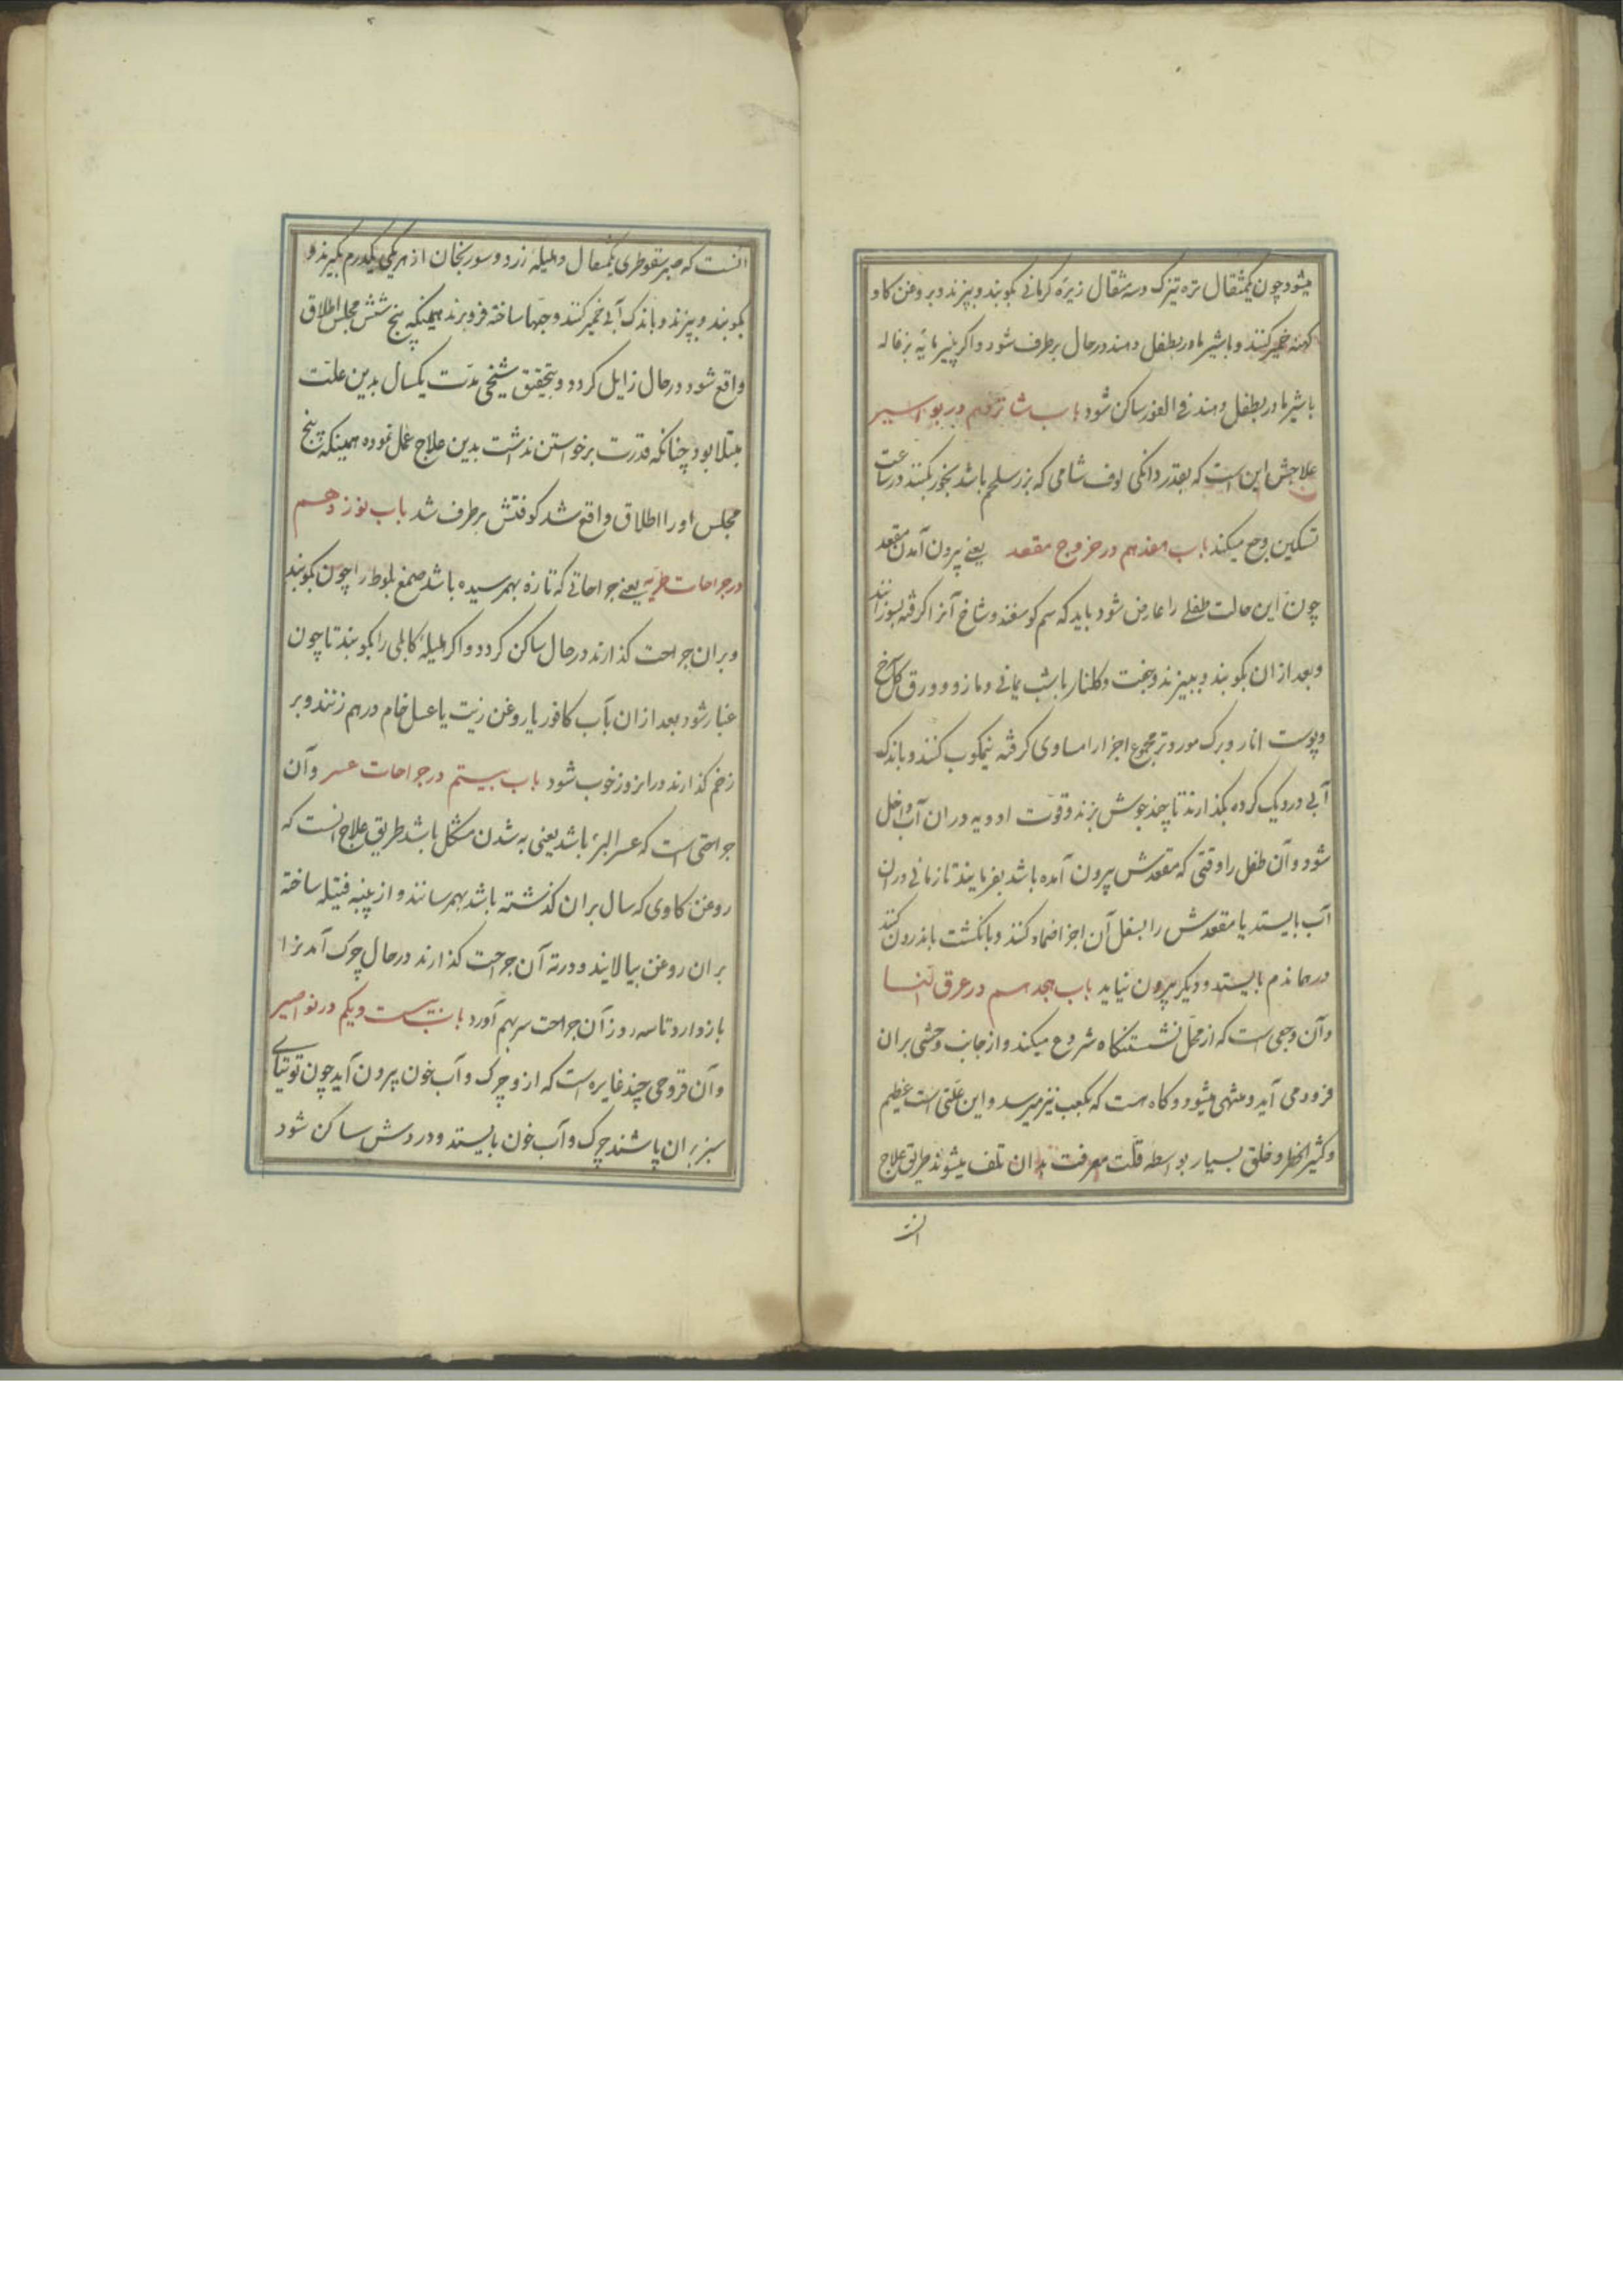 میشود چون یکمثقال تره تیزک و سه مثقال زیره کرمانی بکوبند و بپزند و بروغن کاو
کهنه خمیر کنند و با شیر مادر بطفل دهند در حال برطرف شود و اکر پنیر مایه بزغاله
با شیر مادر بطفل دهند فی الفور ساکن شود باب شانزدهم در بواسیر
علاجش این است که بقدر دانکی لوف شامی که بزر سلجم باشد بخور بکنند در ساعت
تسکین وجع میکند باب هفدهم در خروج مقعد یعنی بیرون آمدن مقعد
چون این حالت طفلی را عارض شود باید که سم کوسفند و شاخ آنرا کرفته بسوزانند
و بعد از ان بکوبند و ببیزند و جفت و کلنار با شب یمانی و مازو و ورق کل سرخ
و پوست انار و برک مورد تر مجموع اجزا را مساوی کرفته نیمکوب کنند و باندک
آبی در دیک کرده بکذارند تا چند جوش بزند و قوت ادویه در ان آب داخل
شود و آن طفل را وقتی که مقعدش بیرون آمده باشد بفرمایند تا زمانی در ان
آب بایستد یا مقعدش را بسفل آن اجزا ضماد کنند و بانکشت باندرون کنند
در همان دم بایستد و دیکر بیرون نیاید باب هجدهم در عرق النسا
و آن وجعی است که از محل نشستنکاه شروع میکند و از جانب وحشی بران
فرود می آید و منتهی میشود و کاه هست که بکعب نیز میرسد و این علتی است عظیم
و کثیر الخطر و خلق بسیار بواسطه قلت معرفت بدان تلف میشوند طریق علاج
انست
انست که صبر سقوطری یکمثقال و هلیله زرد و سورنجان از هر یکی یکدرم بکیرند و
بکوبند و بپزند و باندک آبی خمیر کنند و حبها ساخته فرو برند همینکه پنج شش مجلس اطلاق
واقع شود در حال زایل کردد و بتحقیق شیخی مدت یکسال بدین علت
مبتلا بود چنانکه قدرت برخواستن نداشت بدین علاج عمل نموده همینکه پنج
مجلس او را اطلاق واقع شد کوفتش برطرف شد باب نوزدهم
در جراحات طریه یعنی جراحاتی که تازه بهمرسیده باشد صمغ بلوط را چون بکوبند
و بران جراحت کذارند در حال ساکن کردد و اکر هلیله کابلی را بکوبند تا چون
غبار شود بعد از ان بآب کافور یا روغن زیت یا عسل خام در هم زنند و بر
زخم کذارند در انروز خوب شود باب بیستم در جراحات عسر و آن
جراحتی است که عسر البرء باشد یعنی به شدن مشکل باشد طریق علاج انست که
روغن کاوی که سال بران کذشته باشد بهمرسانند و از پنبه فتیله ساخته
بران روغن بیالایند و در ته آن جراحت کذارند در حال چرک آمدنرا
بازدارد تا سه روز آن جراحت سر بهم آورد باب بیست و یکم در نواصیر
و آن قروحی چند غایره است که ازو چرک و آب خون بیرون آید چون توتیای
سبز بران پاشند چرک و آب خون بایستد و دردش ساکن شود